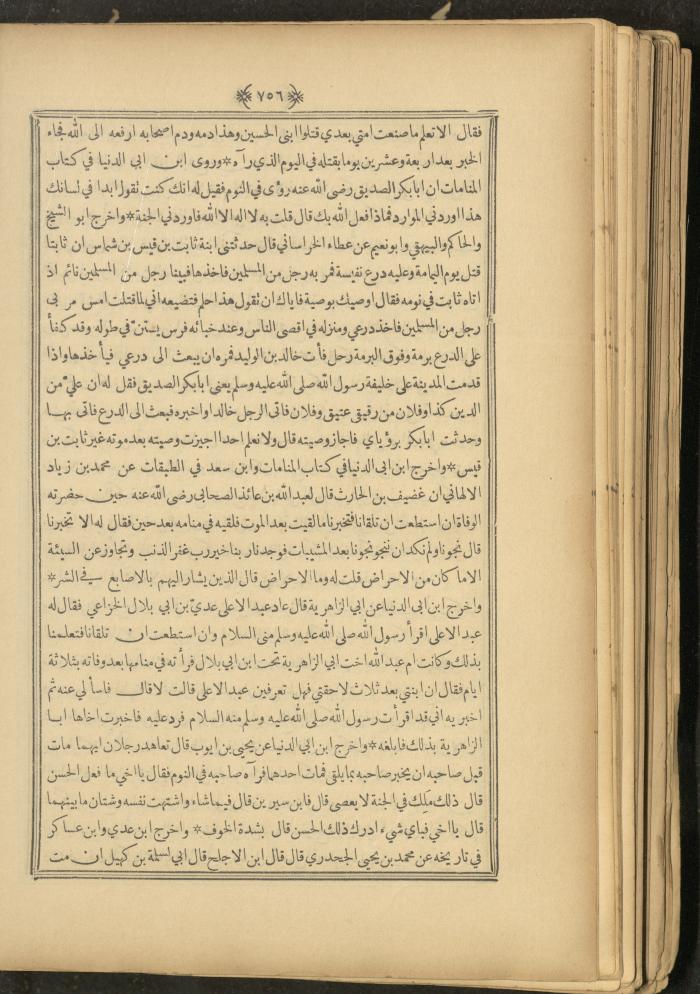 ﴿٧٥٦﴾
فقال الا تعلم ما صنعت امتي بعدي قتلوا ابنى الحسين وهذا دمه ودم اصحابه ارفعه الى الله فجاء
الخبر بعد اربعة وعشرين يوما بقتله في اليوم الذي رآه * وروى ابن ابى الدنيا في كتاب
المنامات ان ابا بكر الصديق رضى الله عنه رؤى في النوم فقيل له انك كنت تقول ابدا في لسانك
هذا اوردني الموارد فماذا فعل الله بك قال قلت به لا اله الا الله فاوردني الجنة * واخرج ابو الشيخ
والحاكم والبيهقي وابو نعيم عن عطاء الخراساني قال حدثتنى ابنة ثابت بن قيس بن شماس ان ثابتا
قتل يوم اليمامة وعليه درع نفيسة فمر به رجل من المسلمين فاخذها فبينا رجل من المسلمين نائم اذ
اتاه ثابت في نومه فقال اوصيك بوصية فاياك ان تقول هذا حلم فتضيعه اني لما قتلت امس مر بى
رجل من المسلمين فاخذ درعي ومنزله في اقصى الناس وعند خبائه فرس يستنّ في طوله وقد كفأ
على الدرع برمة وفوق البرمة رحل فأت خالد بن الوليد فمره ان يبعث الى درعي فيأخذها واذا
قدمت المدينة على خليفة رسول الله صلى الله عليه وسلم يعنى ابا بكر الصديق فقل له ان عليّ من
الدين كذا وفلان من رقيقي عتيق وفلان فاتى الرجل خالدا واخبره فبعث الى الدرع فاتى بهـا
وحدثت ابا بكر برؤياي فاجاز وصيته قال ولا نعلم احدا اجيزت وصيته بعد موته غير ثابت بن
قيس * واخرج ابن ابى الدنيا في كتاب المنامات وابن سعد في الطبقات عن محمد بن زياد
الالهاني ان غضيف بن الحارث قال لعبد الله بن عائذ الصحابى رضى الله عنه حين حضرته
الوفاة ان استطعت ان تلقانا فتخبرنا ما لقيت بعد الموت فلقيه في منامه بعد حين فقال له الا تخبرنا
قال نجونا ولم نكد ان ننجو نجونا بعد المشيبات فوجدنا ربنا خير رب غفر الذنب وتجاوز عن السيئة
الا ما كان من الاحراض قلت له وما الاحراض قال الذين يشار اليهم بالاصابع في الشر *
واخرج ابن ابى الدنيا عن ابي الزاهرية قال عاد عبد الاعلى عديّ بن ابي بلال الخزاعي فقال له
عبد الاعلى اقرأ رسول الله صلى الله عليه وسلم منى السلام وان استطعت ان تلقانا فتعلمنا
بذلك وكانت ام عبد الله اخت ابي الزاهرية تحت ابن ابي بلال فرأته في منامها بعد وفاته بثلاثة
ايام فقال ان ابنتي بعد ثلاث لاحقتي فهل تعرفين عبد الاعلى قالت لا قال فاسألي عنه ثم
اخبريه اني قد اقرأت رسول الله صلى الله عليه وسلم منه السلام فرد عليه فاخبرت اخاها ابا
الزاهرية بذلك فابلغه * واخرج ابن ابي الدنيا عن يحيى بن ايوب قال تعاهد رجلان ايهما مات
قبل صاحبه ان يخبر صاحبه بما يلقى فمات احدهما فرآه صاحبه في النوم فقال يا اخي ما فعل الحسن
قال ذلك ملك في الجنة لا يعصى قال فابن سيرين قال فيما شاء واشتهت نفسه وشتان ما بينهما
قال يا اخي فباي شيء ادرك ذلك الحسن قال بشدة الخوف * واخرج ابن عدي وابن عساكر
في تاريخه عن محمد بن يحيى الجحدري قال قال ابن الاجلح قال ابي لسلمة بن كهيل ان مت